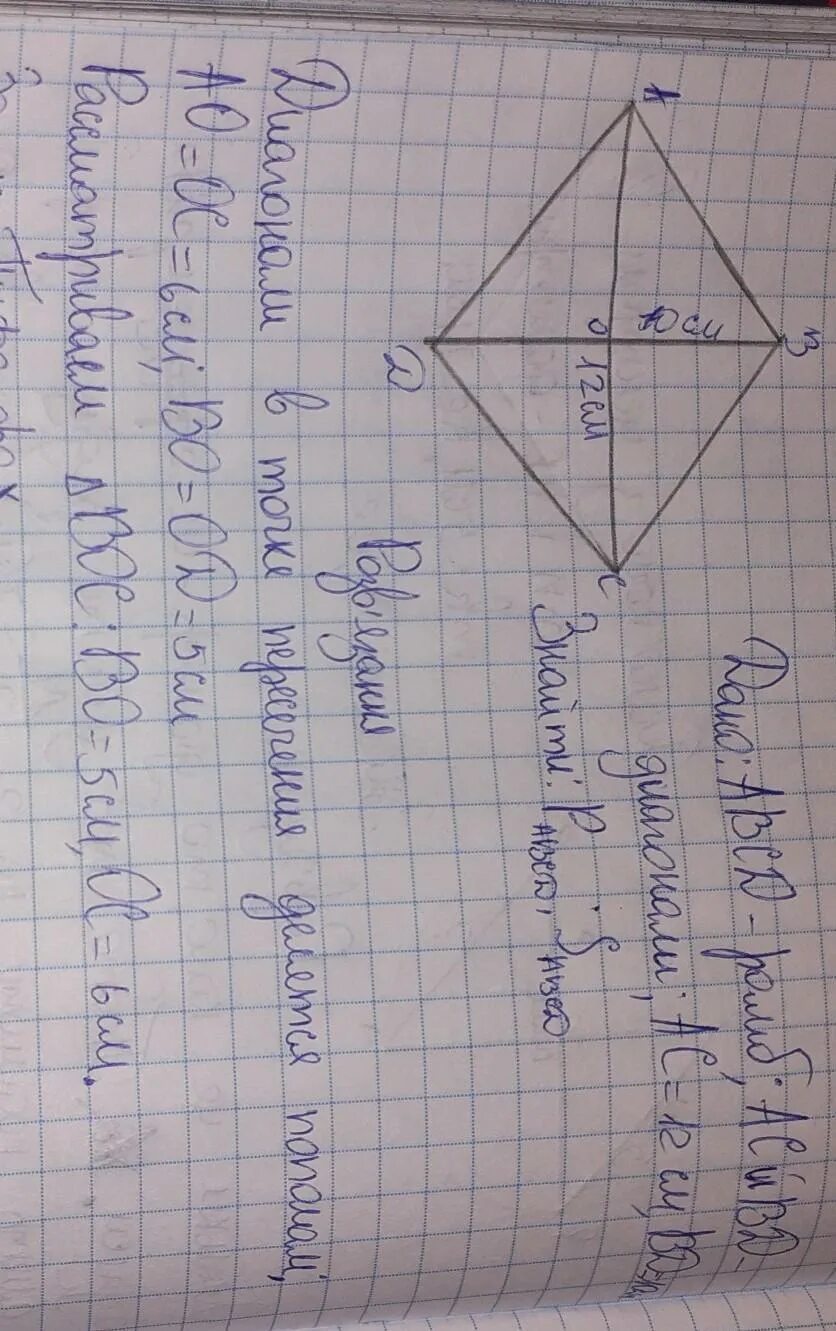 Дано: ABCD - ромб; AC и BD -
диагонали; AC = 12 см, BD =
Знайти: P ABCD, S ABCD
A
B
C
D
O
10 см
12 см
Розв'язання
Диагонали в точке пересечения делется пополам;
AO = OC = 6 см; BO = OD = 5 см
Рассматриваем Δ BOC: BO = 5 см, OC = 6 см.